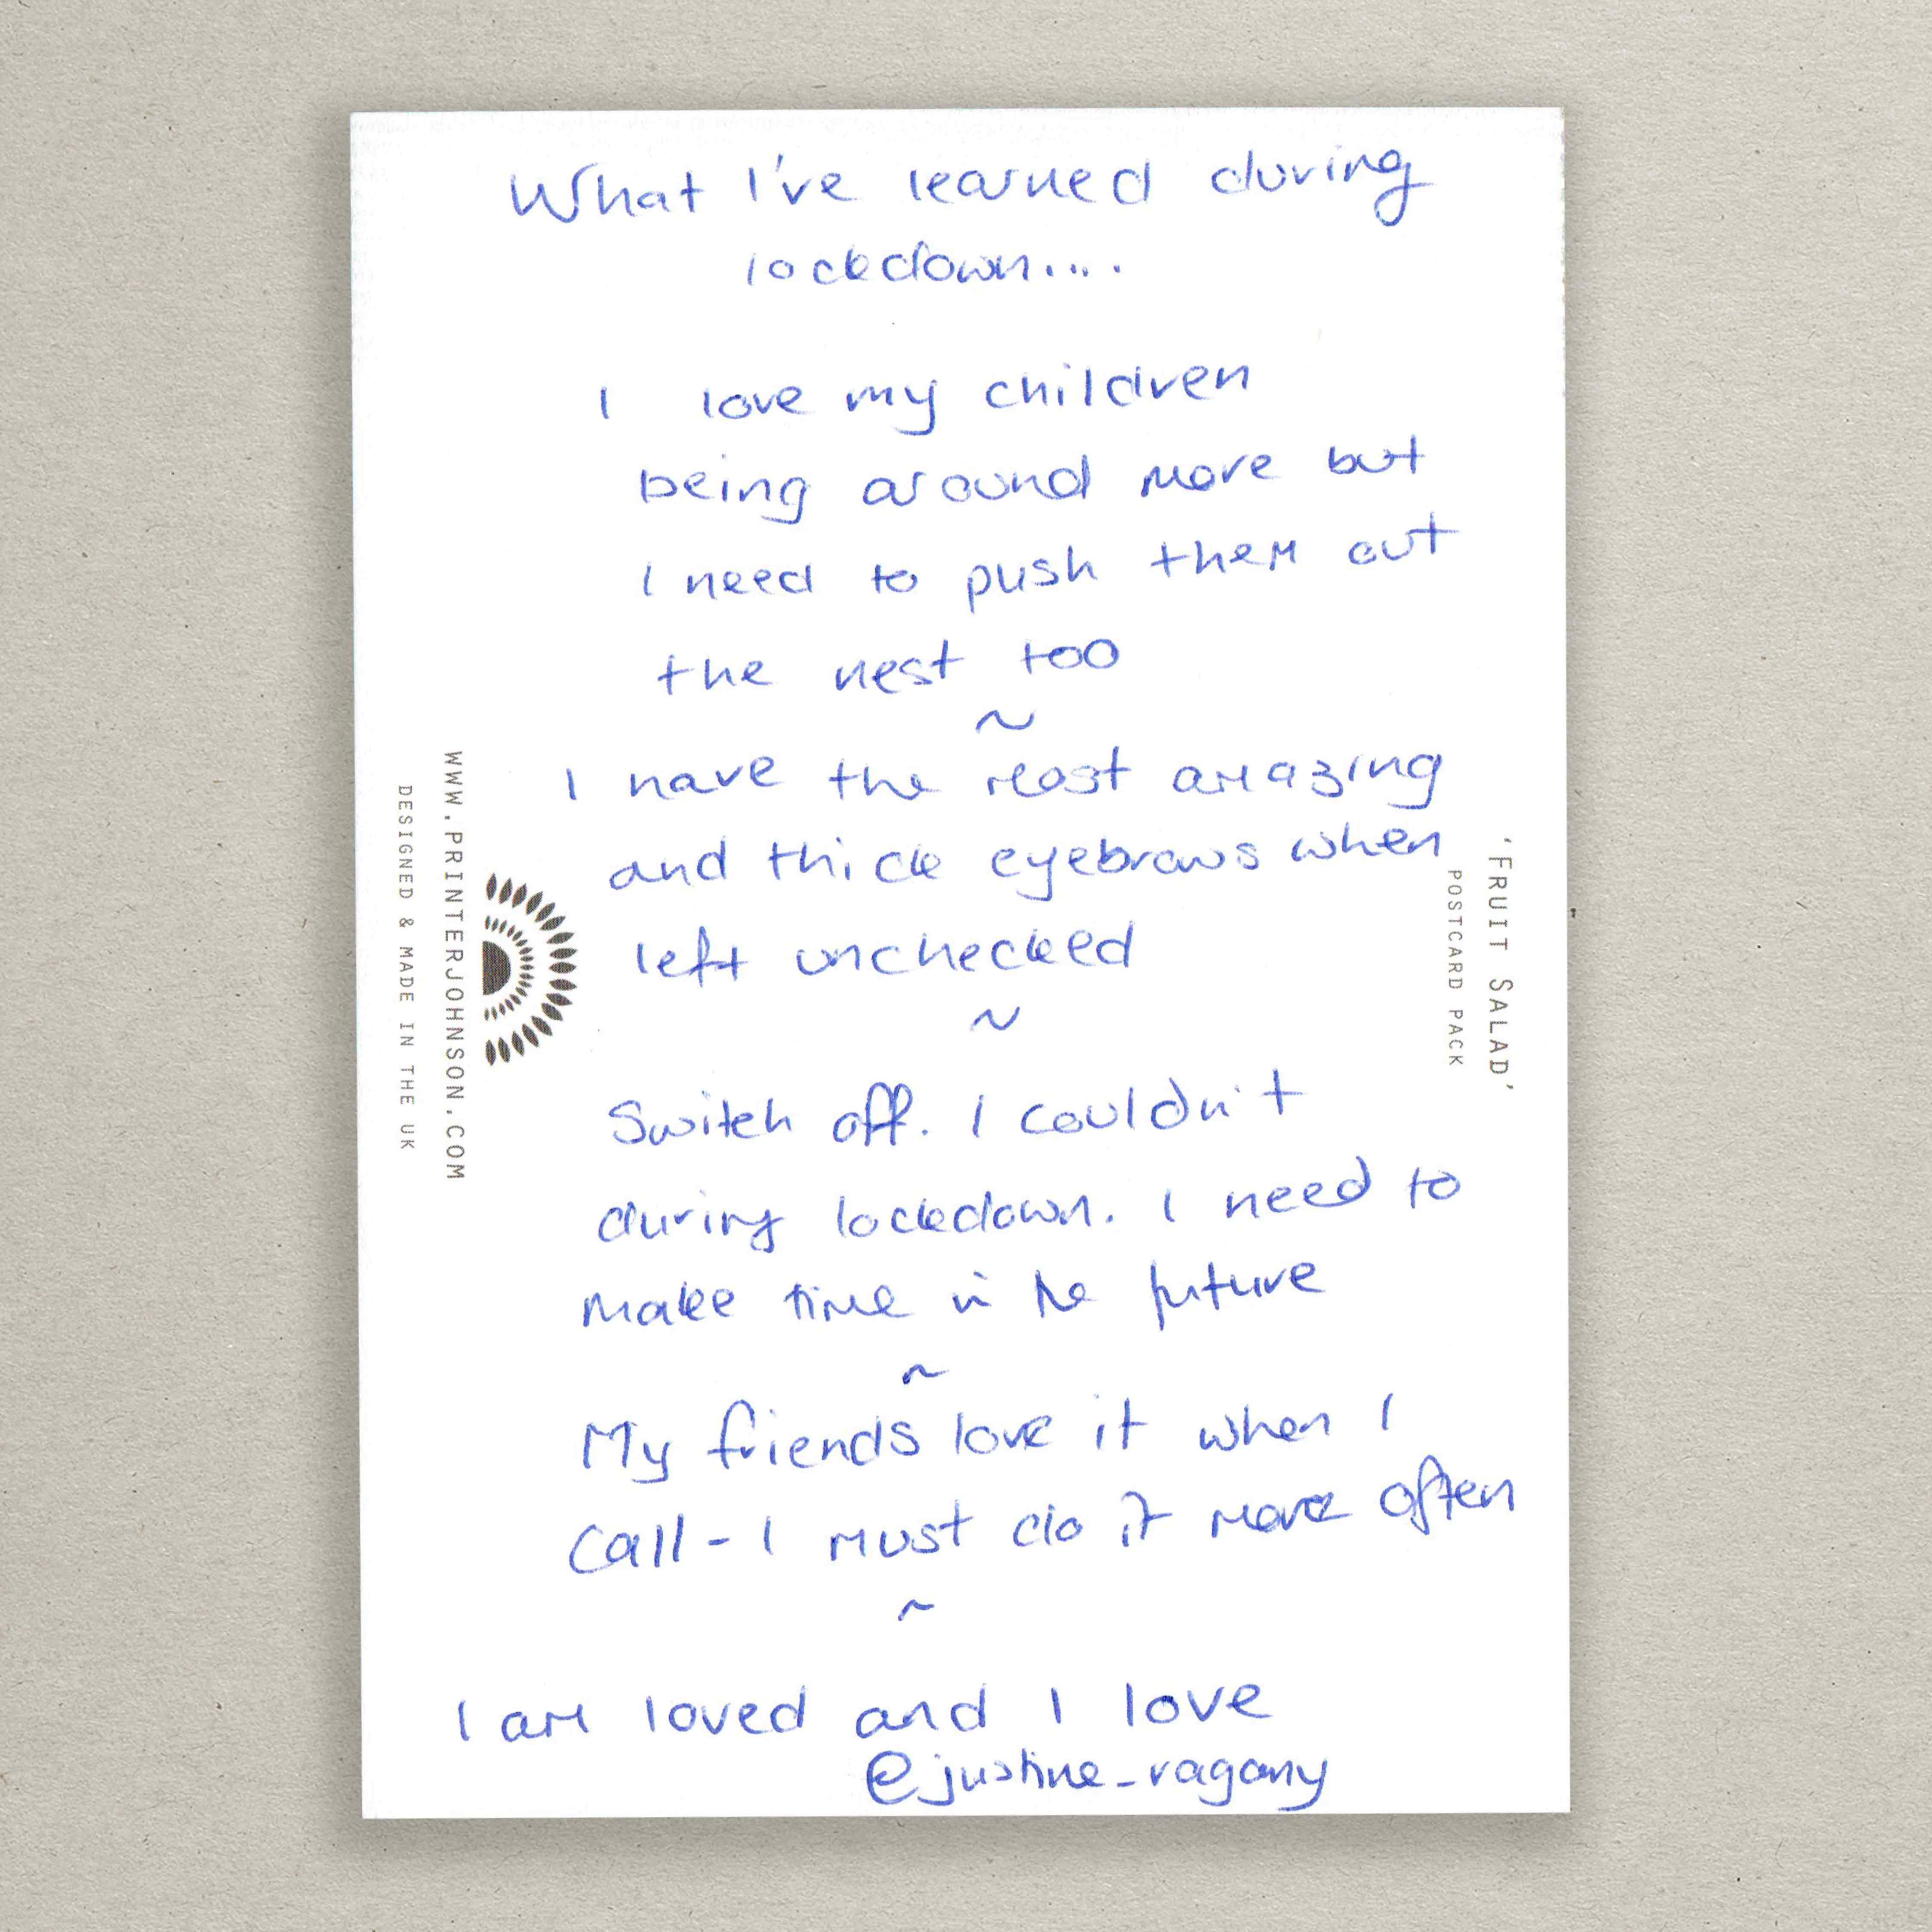 What I've learned during
lockdown....
I love my children
being around more but
I need to push them out
the nest too
~
I have the most amazing
and thick eyebrows when
left unchecked
~
Switch off. I couldn't
during lockdown. I need to
make time in the future
~
My friends love it when I
call - I must do it more often
~
I am loved and I love
@justine_ragany
WWW.PRINTERJOHNSON.COM
DESIGNED & MADE IN THE UK
'FRUIT SALAD'
POSTCARD PACK